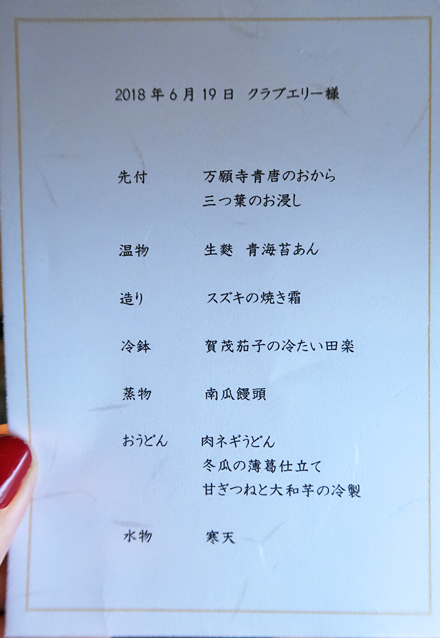 2018年6月19日 クラブエリー様
先付 万願寺青唐のおから
三つ葉のお浸し
温物 生麩 青海苔あん
造り スズキの焼き霜
冷鉢 賀茂茄子の冷たい田楽
蒸物 南瓜饅頭
おうどん 肉ネギうどん
冬瓜の薄葛仕立て
甘ぎつねと大和芋の冷製
水物 寒天